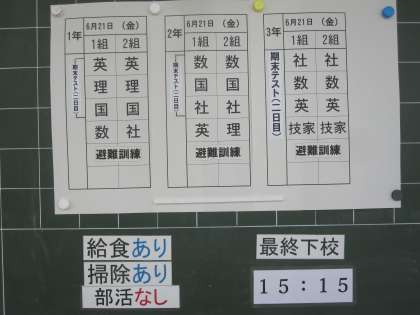 1年
6月21日 (金)
1組 2組
期末テスト(二日目)
英 英
理 理
国 国
数 社
避難訓練
2年
6月21日 (金)
1組 2組
期末テスト(二日目)
数 数
国 国
社 社
英 理
避難訓練
3年
6月21日 (金)
1組 2組
期末テスト(二日目)
社 社
数 数
英 英
技家 技家
避難訓練
給食あり
掃除あり
部活なし
最終下校
15:15